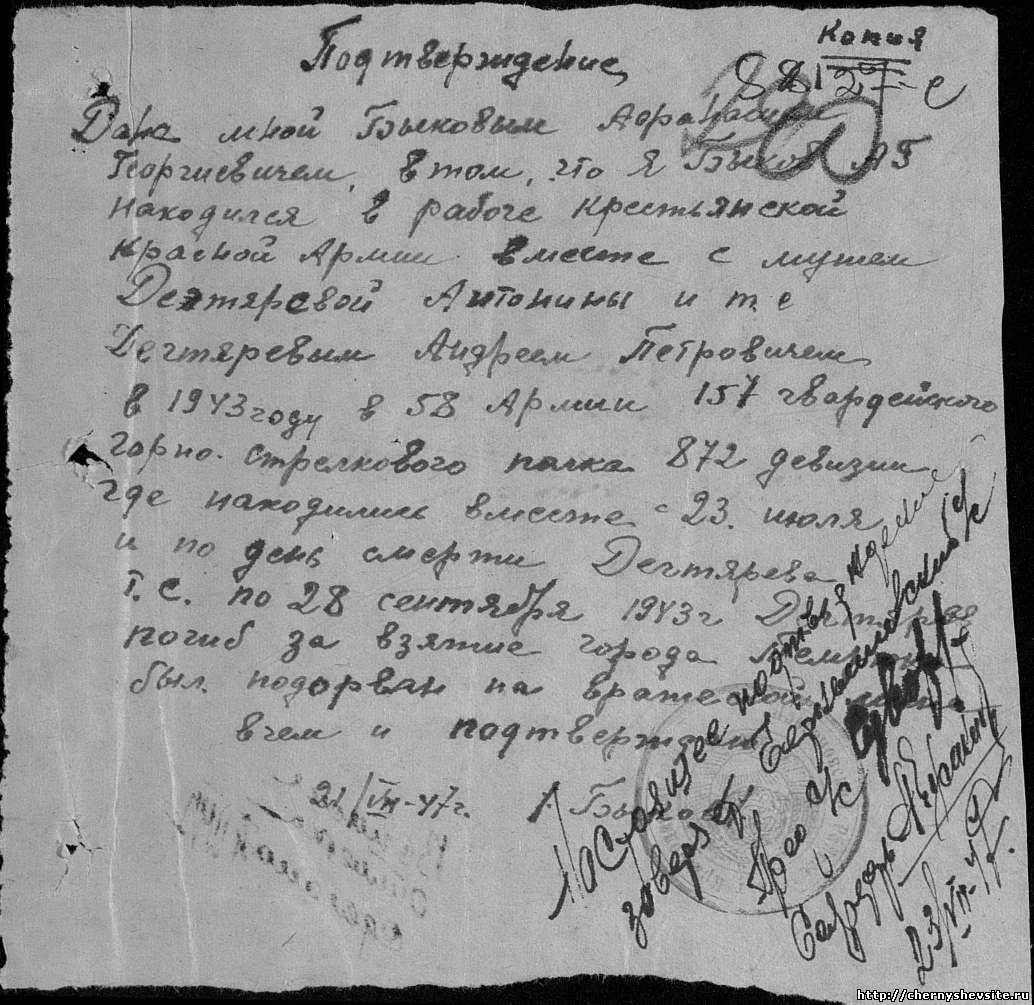 Копия
Подтверждение
Дано мной Быковым Афанасием
Георгиевичем, в том, что я Быков А Г
находился в рабоче крестьянской
красной Армии вместе с мужем
Дегтяревой Антонины и т е
Дегтяревым Андреем Петровичем
в 1943 году в 58 Армии 157 гвардейского
горно-стрелкового полка 872 девизии
где находились вместе с 23. июля
и по день смерти Дегтярева
т. е. по 28 сентября 1943 г
погиб за взятие города
был подорван на вражеской
в чем и подтверждаю
21/VII-47г. Быков
Настоящее подтверждение
заверяет с/с
Пред с/с
Секретарь
23/VII-47г.
http://chernyshevsite.ru